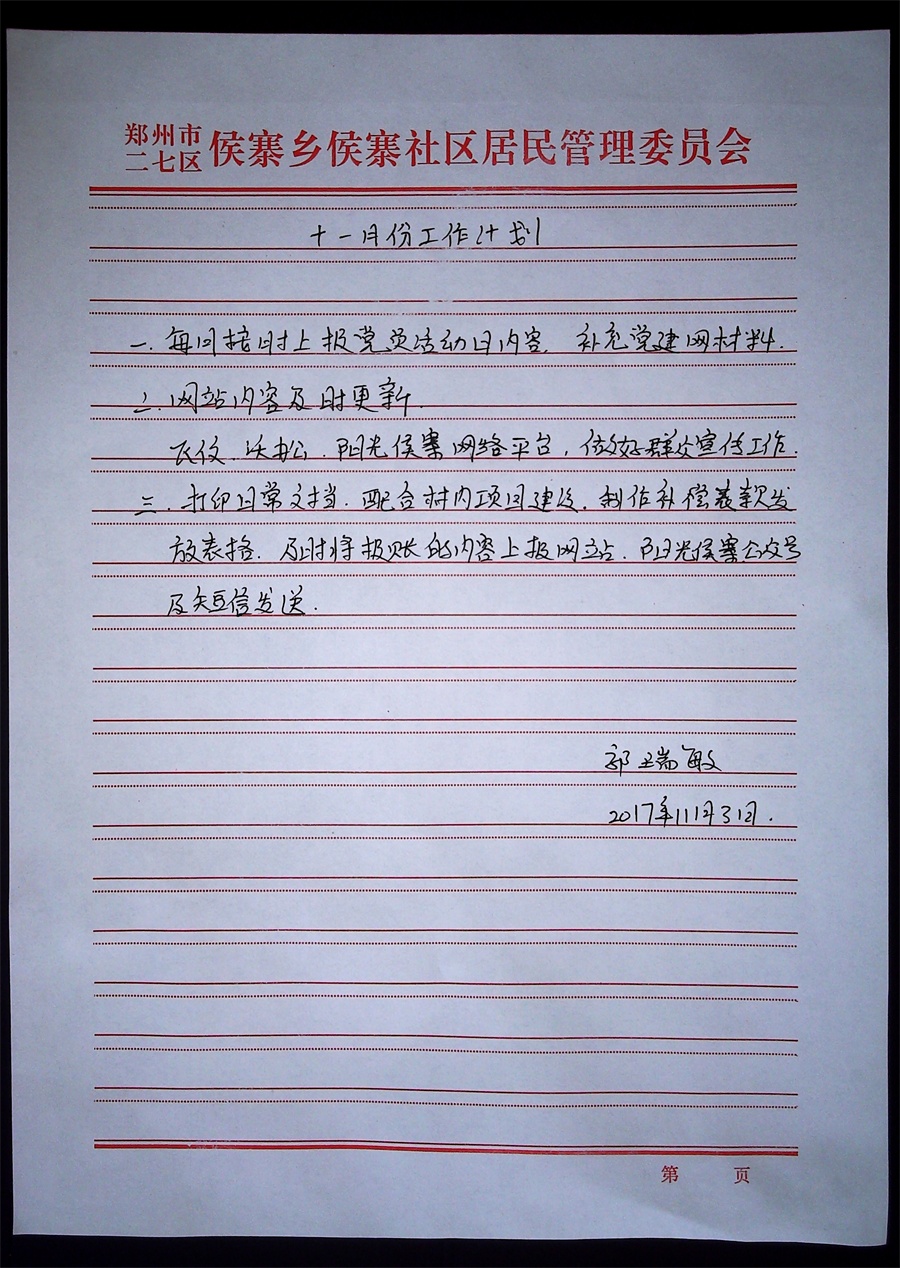 郑州市
二七区 侯寨乡侯寨社区居民管理委员会
十一月份工作计划
一.每月按时上报党员活动日内容.补充党建网材料.
二.网站内容及时更新.
民役.沃办公.阳光侯寨网络平台,做好群众宣传工作.
三.打印日常文档.配合村内项目建设.制作补偿表款发
放表格.及时将报账的内容上报网站.阳光侯寨公众号
及短信发送.
郭瑞敏
2017年11月31日.
第 页